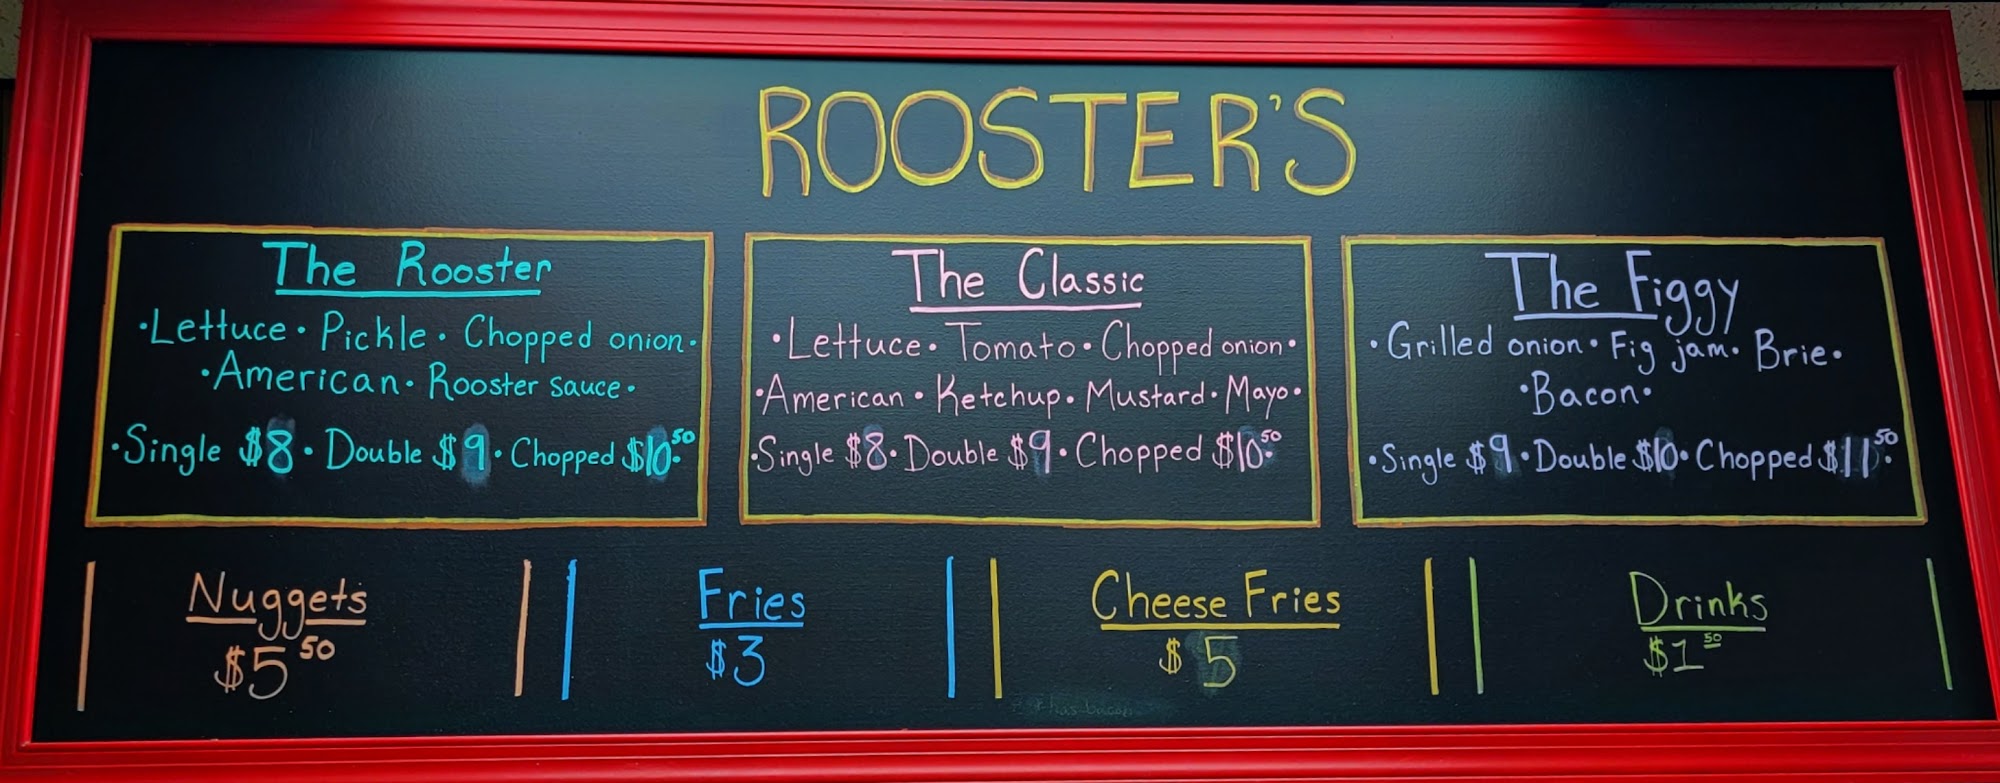 ROOSTER'S
The Rooster
•Lettuce • Pickle • Chopped onion•
•American • Rooster sauce•
•Single $8 • Double $9 • Chopped $10.50
The Classic
•Lettuce • Tomato • Chopped onion•
•American • Ketchup • Mustard • Mayo•
•Single $8 • Double $9 • Chopped $10.50
The Figgy
•Grilled onion • Fig jam • Brie•
•Bacon•
•Single $9 • Double $10 • Chopped $11.50
Nuggets
$5 50
Fries
$3
Cheese Fries
$5
*has bacon
Drinks
$1 50